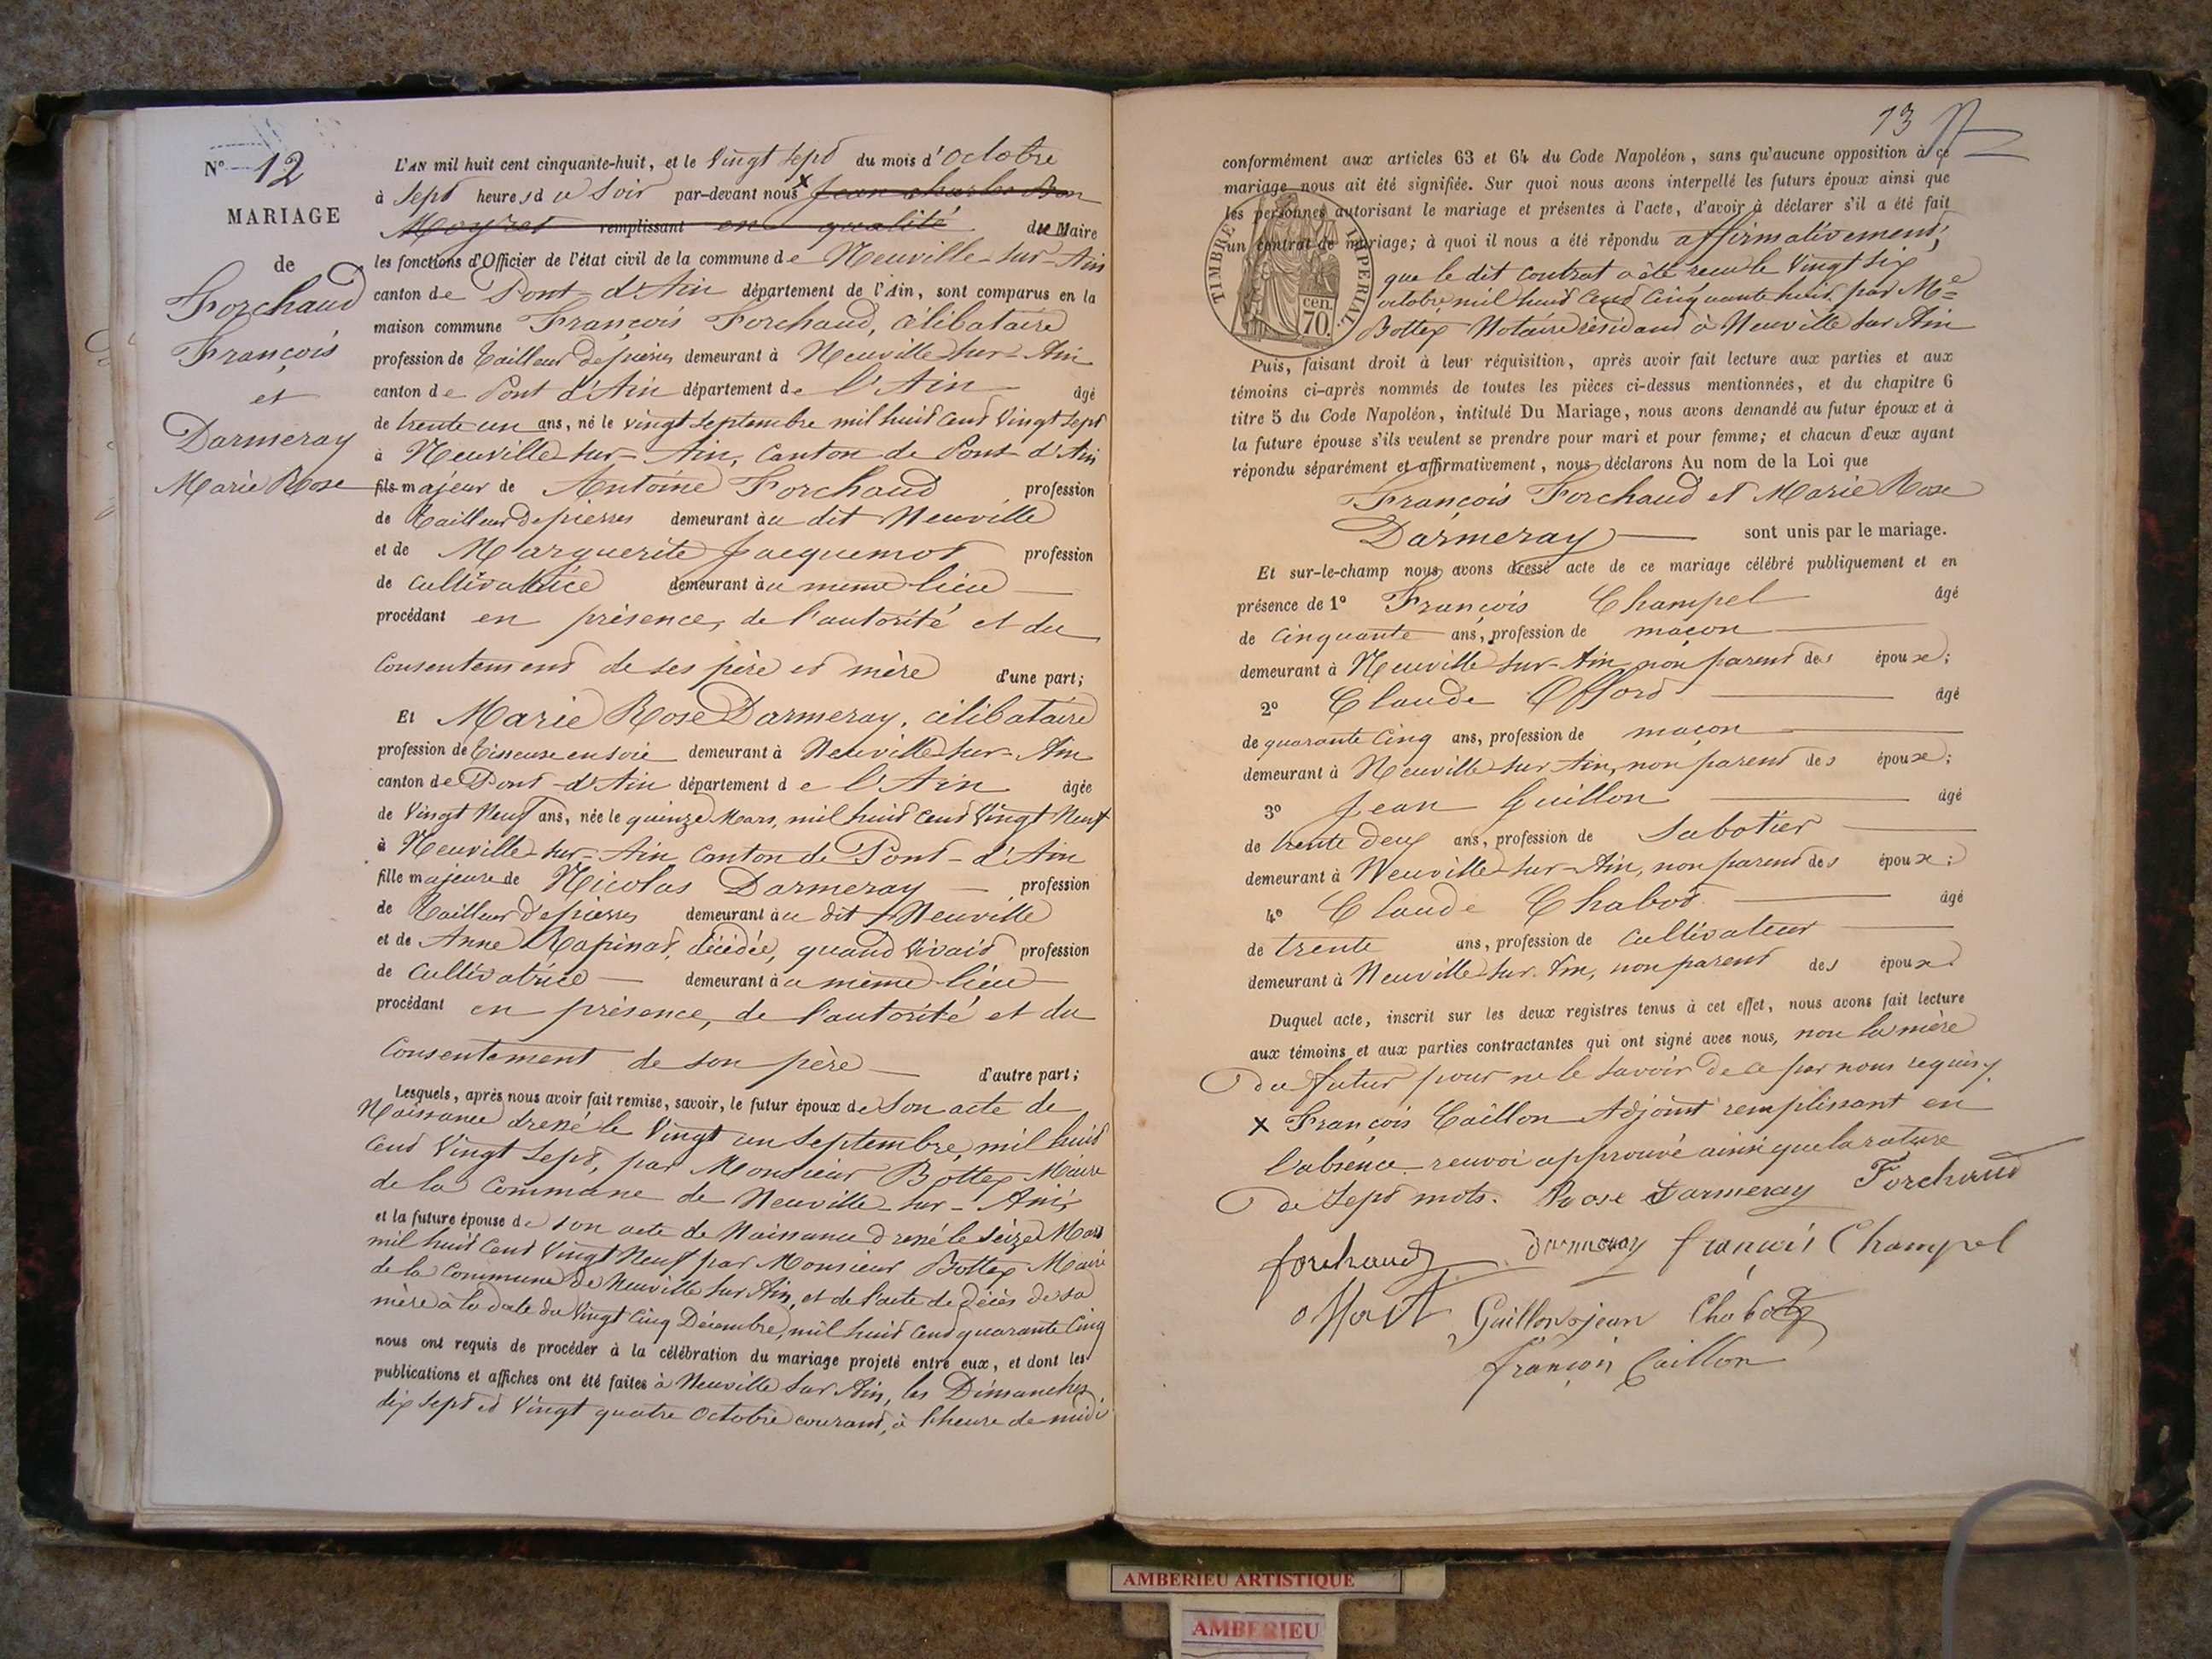 N° 12
MARIAGE
de
Forchaud
François
et
Darmeray
Marie Rose
L'AN mil huit cent cinquante-huit, et le Vingt Sept du mois d'Octobre
à Sept heures du Soir par-devant nous x Jean Charles Bon
Moyret remplissant en qualité de Maire
les fonctions d'Officier de l'état civil de la commune de Neuville-sur-Ain
canton de Pont-d'Ain département de l'Ain, sont comparus en la
maison commune François Forchaud, célibataire
profession de Tailleur de pierres demeurant à Neuville-sur-Ain
canton de Pont d'Ain département de l'Ain âgé
de trente un ans, né le vingt Septembre mil huit cent vingt sept
à Neuville-sur-Ain, Canton de Pont-d'Ain
fils majeur de Antoine Forchaud profession
de Tailleur de pierres demeurant au dit Neuville
et de Marguerite Jacquemot profession
de cultivatrice demeurant au même lieu
procédant en présence, de l'autorité et du
Consentement de ses père et mère d'une part;
Et Marie Rose Darmeray, célibataire
profession de Tisseuse en soie demeurant à Neuville-sur-Ain
canton de Pont-d'Ain département de l'Ain âgée
de Vingt Neuf ans, née le quinze Mars, mil huit cent Vingt Neuf
à Neuville-sur-Ain Canton de Pont-d'Ain
fille majeure de Nicolas Darmeray profession
de Tailleur de pierres demeurant au dit Neuville
et de Anne Rapinat, décédée, quand vivait profession
de Cultivatrice demeurant au même lieu
procédant en présence, de l'autorité et du
Consentement de son père d'autre part;
Lesquels, après nous avoir fait remise, savoir, le futur époux de Son acte de
Naissance dressé le Vingt un Septembre, mil huit
cent Vingt Sept, par Monsieur Bottex Maire
de la Commune de Neuville-sur-Ain;
et la future épouse de son acte de Naissance dressé le Seize Mars
mil huit cent Vingt Neuf par Monsieur Bottex Maire
de la Commune de Neuville sur Ain, et de l'acte de décès de sa
mère à la date du Vingt Cinq Décembre, mil huit cent quarante Cinq
nous ont requis de procéder à la célébration du mariage projeté entre eux, et dont les
publications et affiches ont été faites à Neuville sur Ain, les Dimanches
dix sept et Vingt quatre Octobre courant, à l'heure de midi
13
conformément aux articles 63 et 64 du Code Napoléon, sans qu'aucune opposition à ce
mariage nous ait été signifiée. Sur quoi nous avons interpellé les futurs époux ainsi que
les personnes autorisant le mariage et présentes à l'acte, d'avoir à déclarer s'il a été fait
un contrat de mariage; à quoi il nous a été répondu affirmativement,
que le dit contrat a été reçu le Vingt Six
octobre mil huit cent cinquante huit par Me
Bottex Notaire résidant à Neuville sur Ain
TIMBRE IMPERIAL
70 cen.
Puis, faisant droit à leur réquisition, après avoir fait lecture aux parties et aux
témoins ci-après nommés de toutes les pièces ci-dessus mentionnées, et du chapitre 6
titre 5 du Code Napoléon, intitulé Du Mariage, nous avons demandé au futur époux et à
la future épouse s'ils veulent se prendre pour mari et pour femme; et chacun d'eux ayant
répondu séparément et affirmativement, nous déclarons Au nom de la Loi que
François Forchaud et Marie Rose
Darmeray sont unis par le mariage.
Et sur-le-champ nous avons dressé acte de ce mariage célébré publiquement et en
présence de 1° François Champel âgé
de Cinquante ans, profession de maçon
demeurant à Neuville-sur-Ain, non parent des époux;
2° Claude Offord âgé
de quarante Cinq ans, profession de maçon
demeurant à Neuville sur Ain, non parent des époux;
3° Jean Guillon âgé
de trente deux ans, profession de Sabotier
demeurant à Neuville-sur-Ain, non parent des époux;
4° Claude Chabot âgé
de trente ans, profession de Cultivateur
demeurant à Neuville-sur-Ain, non parent des époux.
Duquel acte, inscrit sur les deux registres tenus à cet effet, nous avons fait lecture
aux témoins et aux parties contractantes qui ont signé avec nous, non la mère
du futur pour ne le savoir de ce par nous requis.
x François Caillon Adjoint remplissant en
l'absence renvoi approuvé ainsi que la rature
de Sept mots. Rose Darmeray Forchaud
forchaud darmeray françois Champel
offort Guillon jean Chabot
françois Caillon
AMBERIEU ARTISTIQUE
AMBERIEU